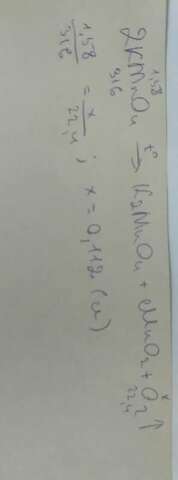 1,58 x
2KMnO4 t° → K2MnO4 + MnO2 + O2↑
316 22,4
1,58/316 = x/22,4 ; x = 0,112 (л)